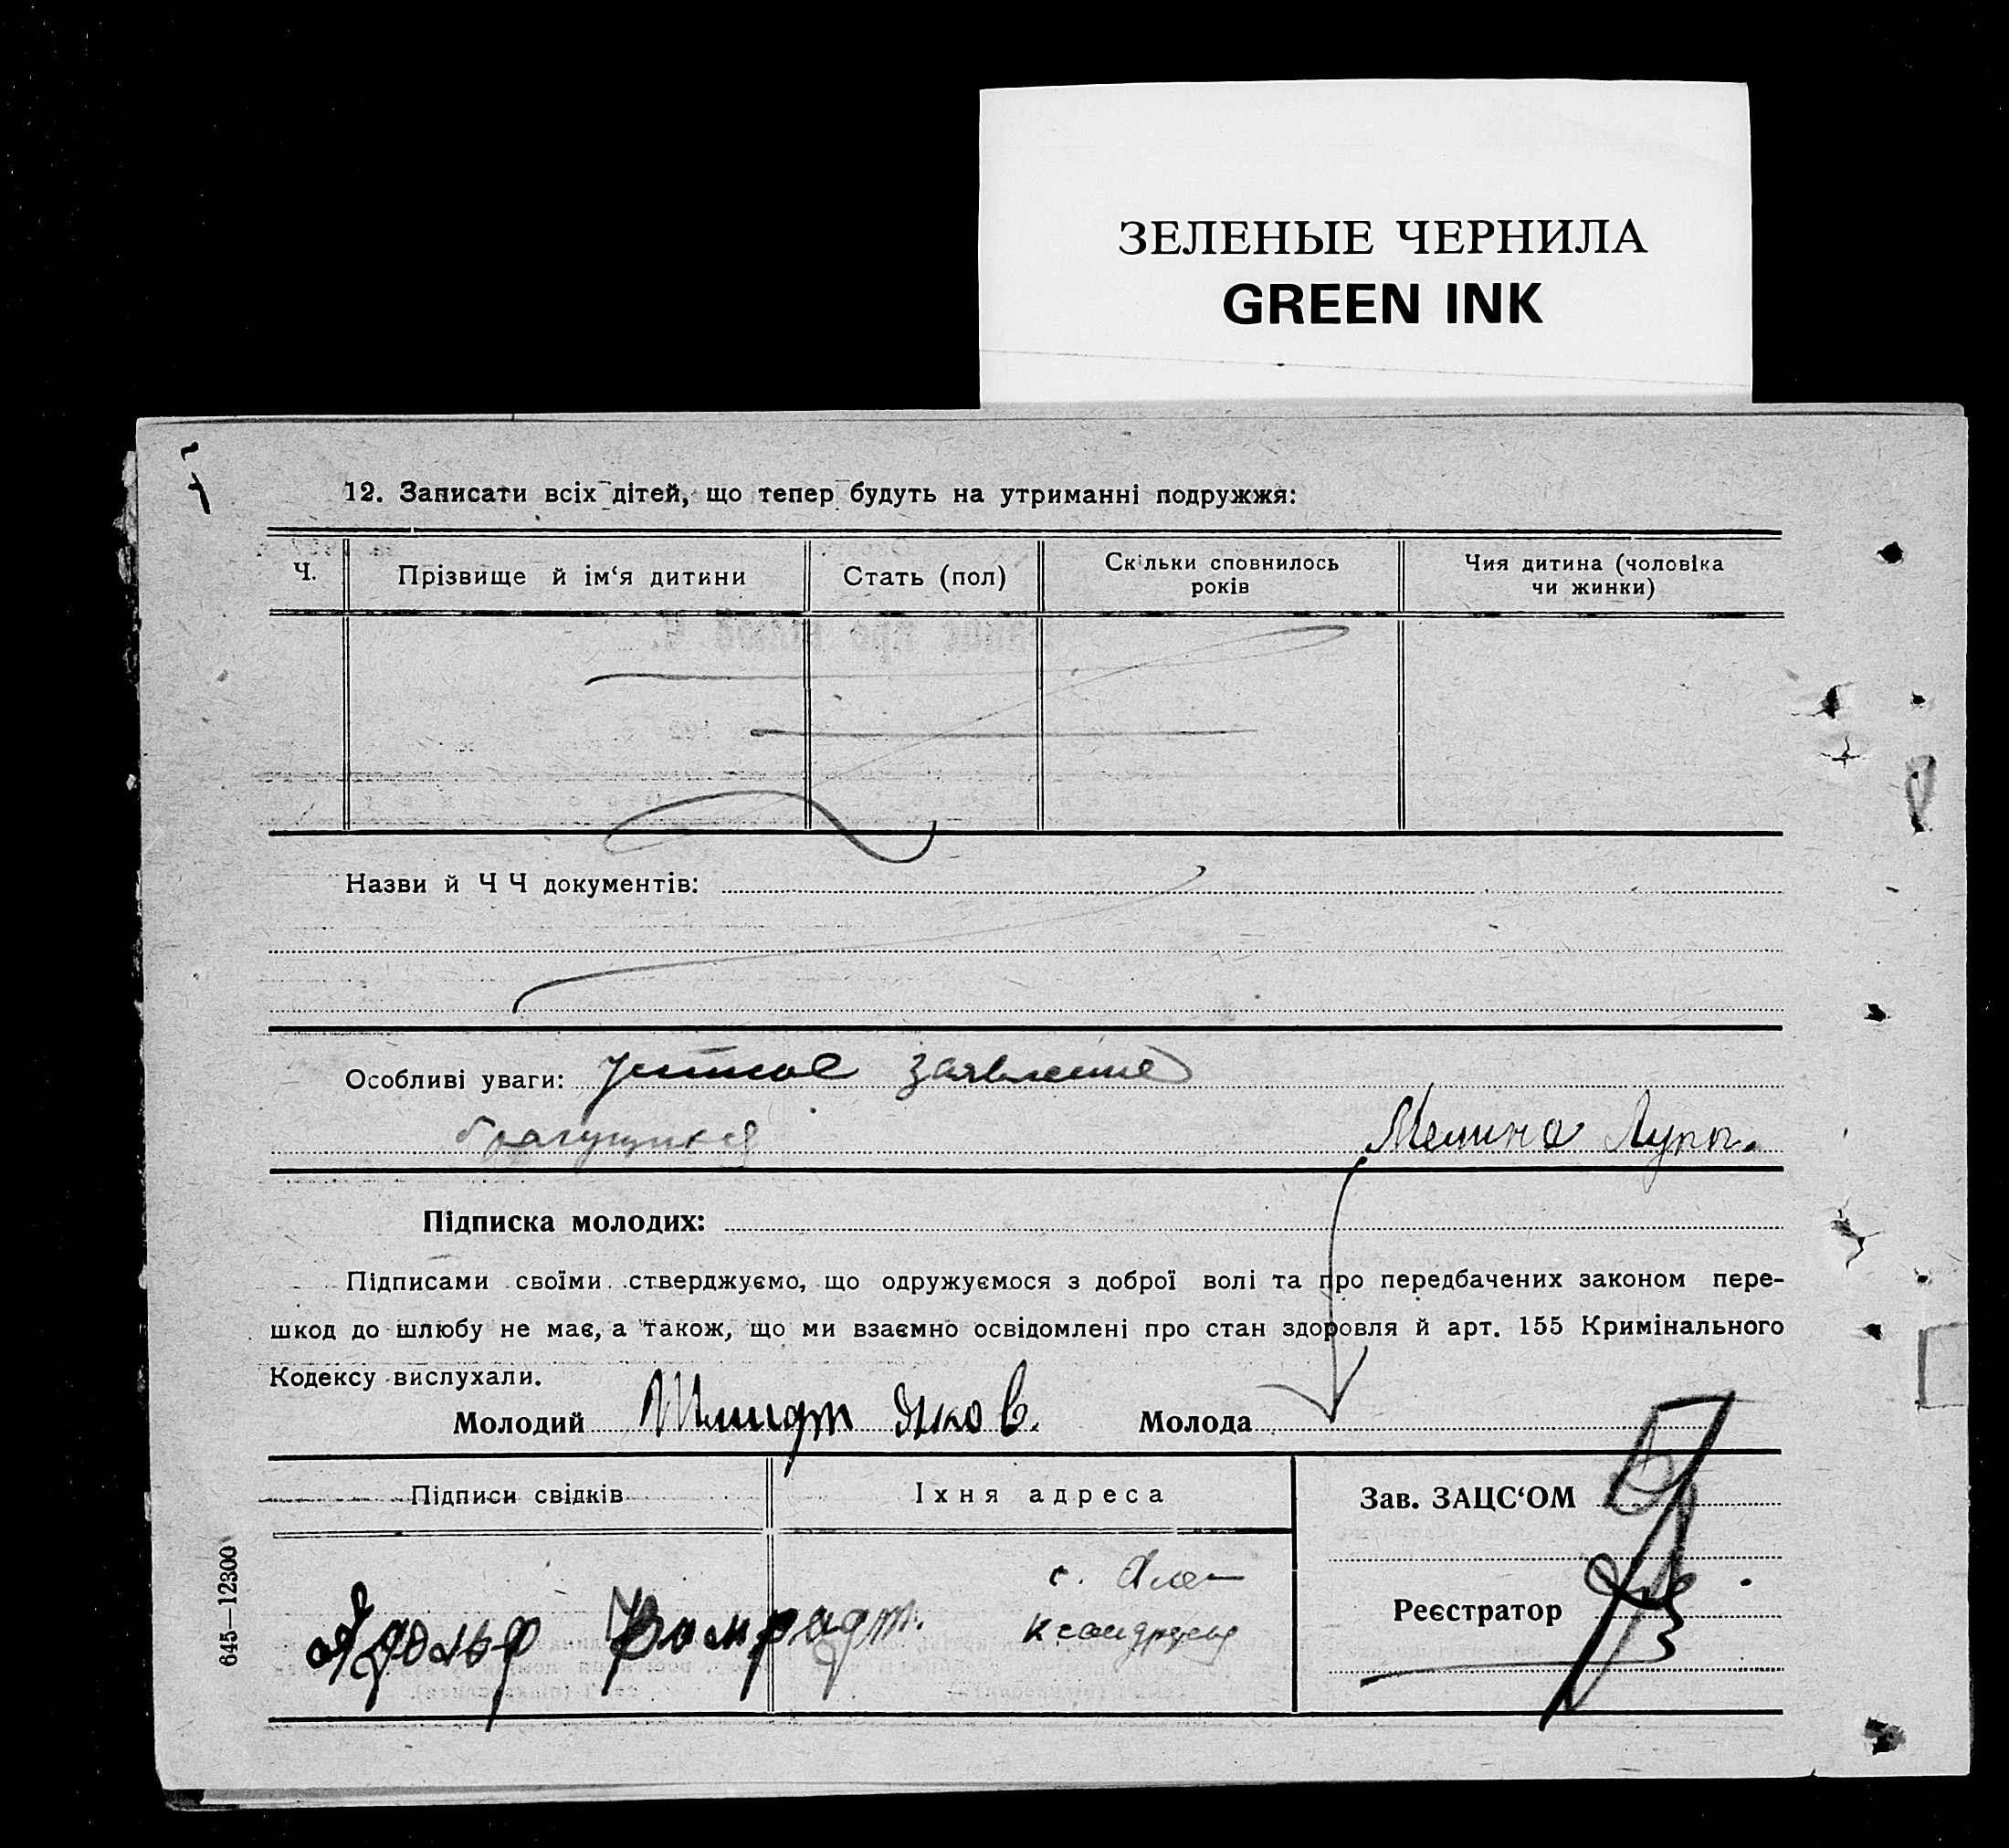 ЗЕЛЕНЫЕ ЧЕРНИЛА
GREEN INK
12. Записати всіх дітей, що тепер будуть на утриманні подружжя:
Ч.
Прізвище й ім‘я дитини
Стать (пол)
Скільки сповнилось
років
Чия дитина (чоловіка
чи жинки)
Назви й ЧЧ документів:
Особливі уваги: Устное заявление
брачущихся
Підписка молодих:
Підписами своїми стверджуємо, що одружуємося з доброї волі та про передбачених законом пере-
шкод до шлюбу не має, а також, що ми взаємно освідомлені про стан здоровля й арт. 155 Кримінального
Кодексу вислухали.
Молодий Шмидт Яков.
Молода
Підписи свідків
Адольф
Їхня адреса
с. Але-
ксандровка
Зав. ЗАЦС‘ОМ
Реєстратор
645—12300